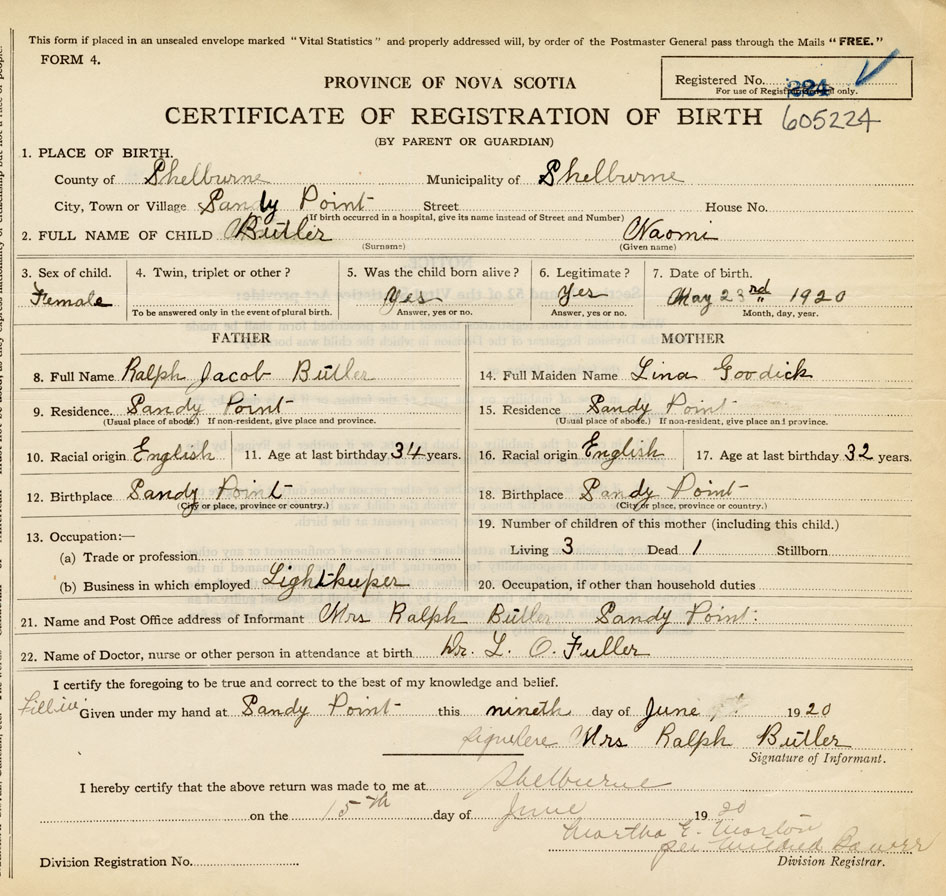 This form if placed in an unsealed envelope marked "Vital Statistics" and properly addressed will, by order of the Postmaster General pass through the Mails "FREE."
FORM 4.
PROVINCE OF NOVA SCOTIA
Registered No. 224
For use of Registrar General only.
CERTIFICATE OF REGISTRATION OF BIRTH 605224
(BY PARENT OR GUARDIAN)
1. PLACE OF BIRTH.
County of Shelburne Municipality of Shelburne
City, Town or Village Sandy Point Street House No.
(If birth occurred in a hospital, give its name instead of Street and Number)
2. FULL NAME OF CHILD Butler Naomi
(Surname) (Given name)
3. Sex of child. 4. Twin, triplet or other? 5. Was the child born alive? 6. Legitimate? 7. Date of birth.
Female Yes Yes May 23rd 1920
To be answered only in the event of plural birth. Answer, yes or no. Answer, yes or no. Month, day, year.
FATHER MOTHER
8. Full Name Ralph Jacob Butler 14. Full Maiden Name Lina Goodick
9. Residence. Sandy Point 15. Residence Sandy Point
(Usual place of abode.) If non-resident, give place and province. (Usual place of abode.) If non-resident, give place and province.
10. Racial origin English 11. Age at last birthday 34 years. 16. Racial origin English 17. Age at last birthday 32 years.
12. Birthplace Sandy Point 18. Birthplace Sandy Point
(City or place, province or country.) (City or place, province or country.)
19. Number of children of this mother (including this child.)
13. Occupation:—
Living 3 Dead 1 Stillborn
(a) Trade or profession
(b) Business in which employed Lightkeeper 20. Occupation, if other than household duties
21. Name and Post Office address of Informant Mrs Ralph Butler Sandy Point.
22. Name of Doctor, nurse or other person in attendance at birth Dr. L. O. Fuller
I certify the foregoing to be true and correct to the best of my knowledge and belief.
Given under my hand at Sandy Point this nineth day of June 1920
Mrs Ralph Butler
Signature of Informant.
I hereby certify that the above return was made to me at Shelburne
on the 15th day of June 1920
Martha E. Morton
per Mildred
Division Registration No. Division Registrar.